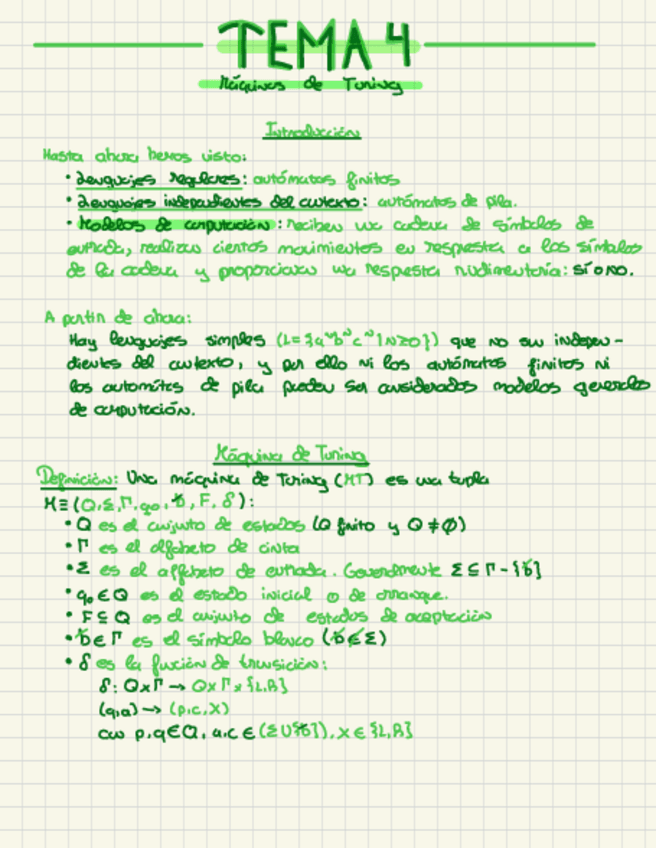 TEMA 4
Máquinas de Turing
Introducción
Hasta ahora hemos visto:
• Lenguajes regulares: autómatas finitos
• Lenguajes independientes del contexto: autómatas de pila.
• Modelos de computación: reciben una cadena de símbolos de
entrada, realizan ciertos movimientos en respuesta a los símbolos
de la cadena y proporcionan una respuesta rudimentaria: sí o no.
A partir de ahora:
Hay lenguajes simples (L={aᴺbᴺcᴺ|N≥0}) que no son indepen-
dientes del contexto, y por ello ni los autómatas finitos ni
los autómatas de pila pueden ser considerados modelos generales
de computación.
Máquina de Turing
Definición: Una máquina de Turing (MT) es una tupla
M≡(Q,Σ,Γ,q₀,ƀ,F,δ):
• Q es el conjunto de estados (Q finito y Q≠Ø)
• Γ es el alfabeto de cinta
• Σ es el alfabeto de entrada. Generalmente Σ⊆Γ-{ƀ}
• q₀∈Q es el estado inicial o de arranque.
• F⊆Q es el conjunto de estados de aceptación
• ƀ∈Γ es el símbolo blanco (ƀ∉Σ)
• δ es la función de transición:
δ: Q×Γ → Q×Γ×{L,R}
(q,a) → (p,c,X)
con p,q∈Q, a,c∈(Σ∪{ƀ}), X∈{L,R}